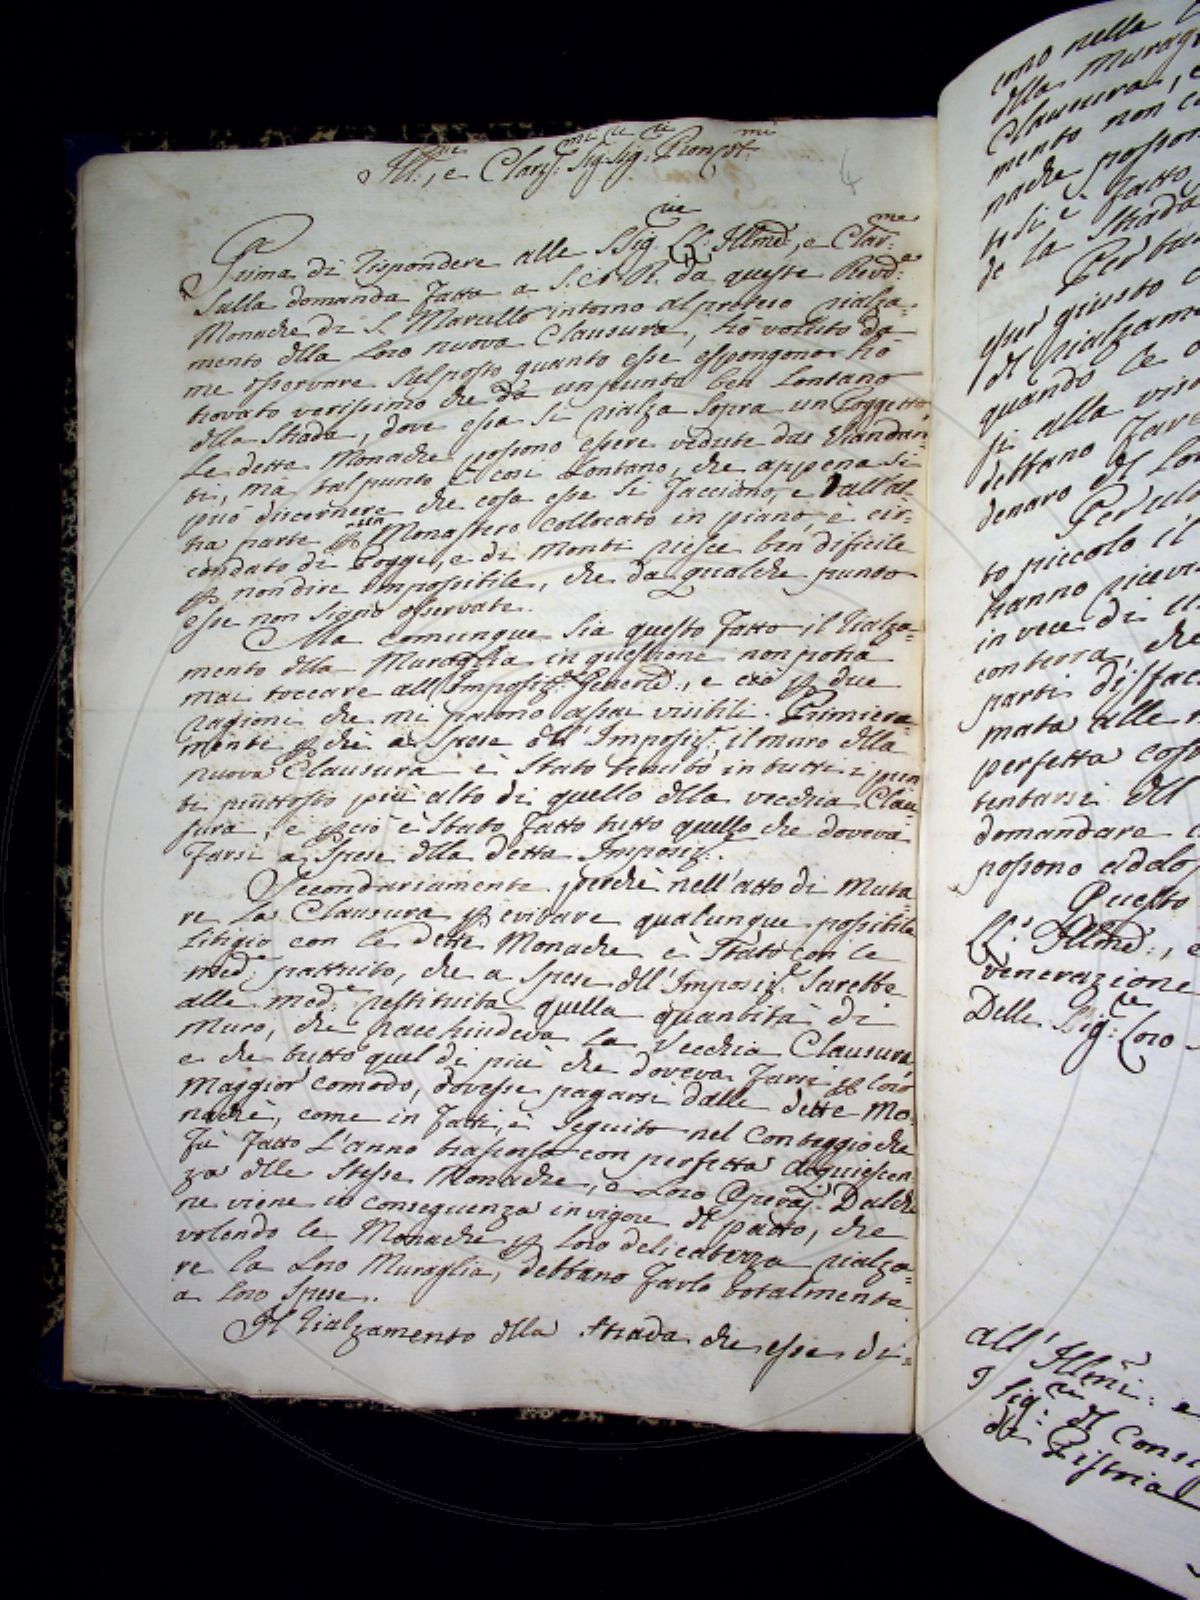 Ill.mi, e Clar.mi Sig.ri Sig.ri Pron. Col.mi
4
Prima di rispondere alle SSig.rie LL: Illme, e Clar.me
Sulla domanda fatta a S.A.R. da queste Revd.e
Monache di S. Marcello intorno al preteso rialza-
mento dlla Loro nuova Clausura, hò voluto da
me osservare sul posto quanto esse espongono. hò
trovato verissimo che da un punto ben Lontano
dlla Strada, dove essa si rialza sopra un Poggetto
Le dette Monache possono essere vedute dai Viandan-
ti, mà tal punto è così Lontano, che appena si
può discernere che cosa esse si facciono, e dall'al-
tra parte p un Monastero collocato in piano, e cir-
condato di Poggi, e di Monti riesce ben dificile
p non dire impossibile, che da qualche punto
esse non siano osservate.
Ma comunque sia questo fatto il rialza-
mento dlla Muraglia in questione non potrà
mai toccare all'Imposiz.e Generale, e ciò p due
ragioni che mi paiono assai visibili. Primiera-
mente p chè a Spese dll'Imposiz.e il muro dlla
nuova Clausura è stato tenuto in tutti i pun
ti piuttosto più alto di quello dlla vecchia Clau
sura, e p ciò è stato fatto tutto quello che doveva
farsi a Spese dlla detta Imposiz.e
Secondariamente perchè nell'atto di muta-
re la Clausura p evitare qualunque possibile
Litigio con le dette Monache è stato con le
med.e pattuito, che a Spese dll'Imposiz.e Sarebbe
alle med.e restituita quella quantità di
Muro, che racchiudeva la Vecchia Clausura
e che tutto quel di più che doveva farsi p loro
Maggior comodo, dovesse pagarsi dalle dette Mo-
nache, come in fatti, è seguito nel Conteggio che
fù fatto L'anno trascorso con perfetta acquiescen-
za dlle stesse Monache, e Loro Operaj. Dalchè
ne viene in conseguenza in vigore dl patto, che
volendo le Monache p loro delicatezza rialza-
re la Loro Muraglia, debbano farlo totalmente
a loro Spese.
Il rialzamento dlla Strada che esse di-
nella
dlla Muragl
Clausura, e
mento non
nache posson
si è fatto,
de la Strada
Per
giusto
dl rialzam
quando le
si alla
debbano far
denaro dl Lor
to piccolo il
hanno ricev
in vece di
con terra, che
parti disfac
mata alle
perfetta
tentarsi dl
domandare
possono
Questo
LL. Illme, e
venerazione
Delle Sig.rie Loro
all' Illmi: e
Sig.ri dl Consi
di Pistoia